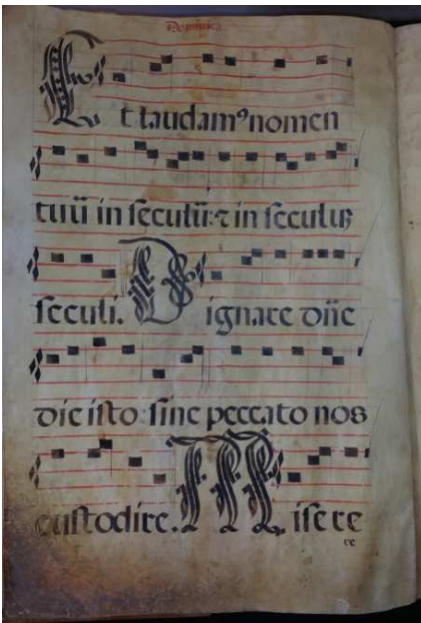 Dominica
Et laudamꝰ nomen
tuū in seculū: ⁊ in seculuꝫ
seculi. Dignare dn̄e
die isto sine peccato nos
custodire. Misere
re